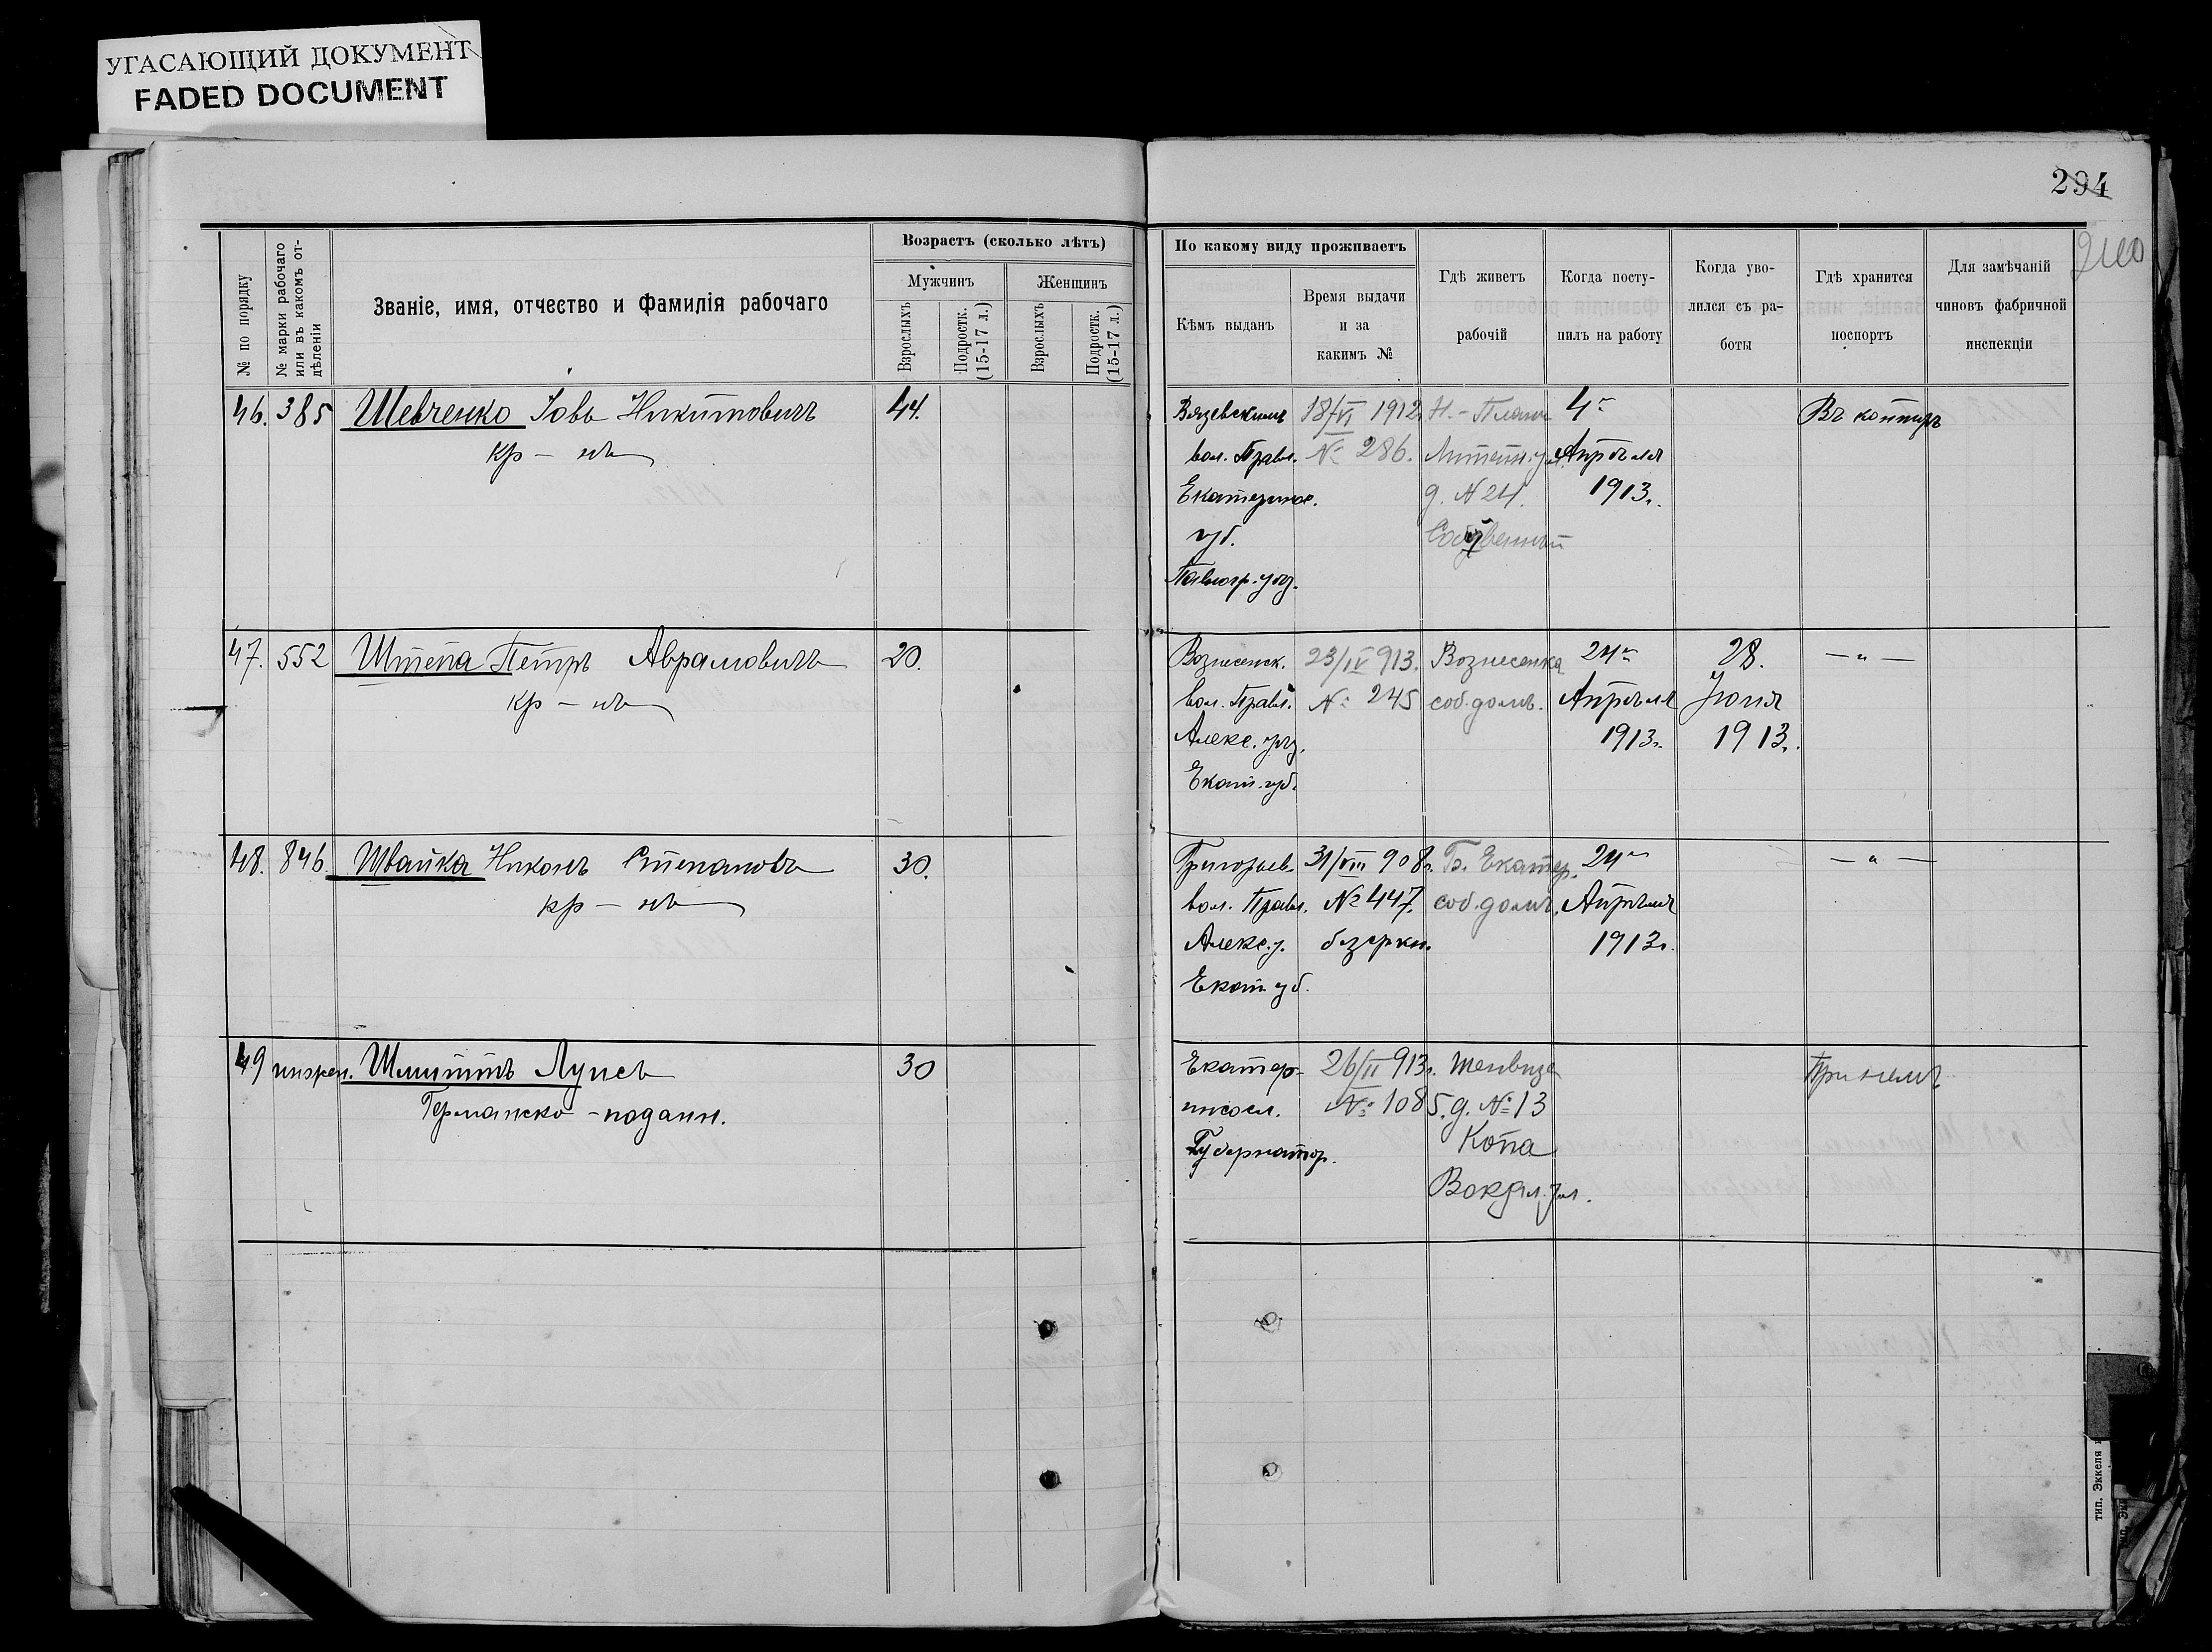 УГАСАЮЩИЙ ДОКУМЕНТ
FADED DOCUMENT
294
№ по порядку
№ марки рабочаго
или въ какомъ от-
дѣленіи
Званіе, имя, отчество и фамилія рабочаго
Возрастъ (сколько лѣтъ)
Мужчинъ
Женщинъ
Взрослыхъ
Подростк.
(15-17 л.)
Взрослыхъ
Подростк.
(15-17 л.)
По какому виду проживаетъ
Кѣмъ выданъ
Время выдачи
и за
какимъ №
Гдѣ живетъ
рабочій
Когда посту-
пилъ на работу
Когда уво-
лился съ ра-
боты
Гдѣ хранится
поспортъ
Для замѣчаній
чиновъ фабричной
инспекціи
46. 385 Шевченко Іовъ Никитовичъ 44.
кр-нъ
Вязевскимъ
вол. Правл.
Екатеринос.
губ.
Павлогр. уѣз.
18/VI 1912
№ 286.
Н.-Планъ
Литейн. ул.
д. № 24.
4го
Апрѣля
1913г.
Въ конторѣ
47. 552 Штепа Петръ Аврамовичъ 20.
кр-нъ
Вознесенск.
вол. Правл.
Алекс. уѣз.
Екат. губ.
23/IV 913.
№ 245
Вознесенка
соб. домъ.
24го
Апрѣля
1913г.
28.
Іюня
1913г.
— " —
48. 846. Швайка Никонъ Степановъ 30.
кр-нъ
Григорьев.
вол. Правл.
Алекс. у.
Екат. губ.
31/VIII 908г.
№ 447.
Б. Екатер.
соб. домъ.
24го
Апрѣля
1913г.
— " —
49 Шмиттъ Луисъ 30
Германско-поддан.
Екатер-
иносл.
Губернатор.
26/II 913г.
№ 1085.
д. № 13
Копа
Вокзал. ул.
При немъ
тип. Эккеля